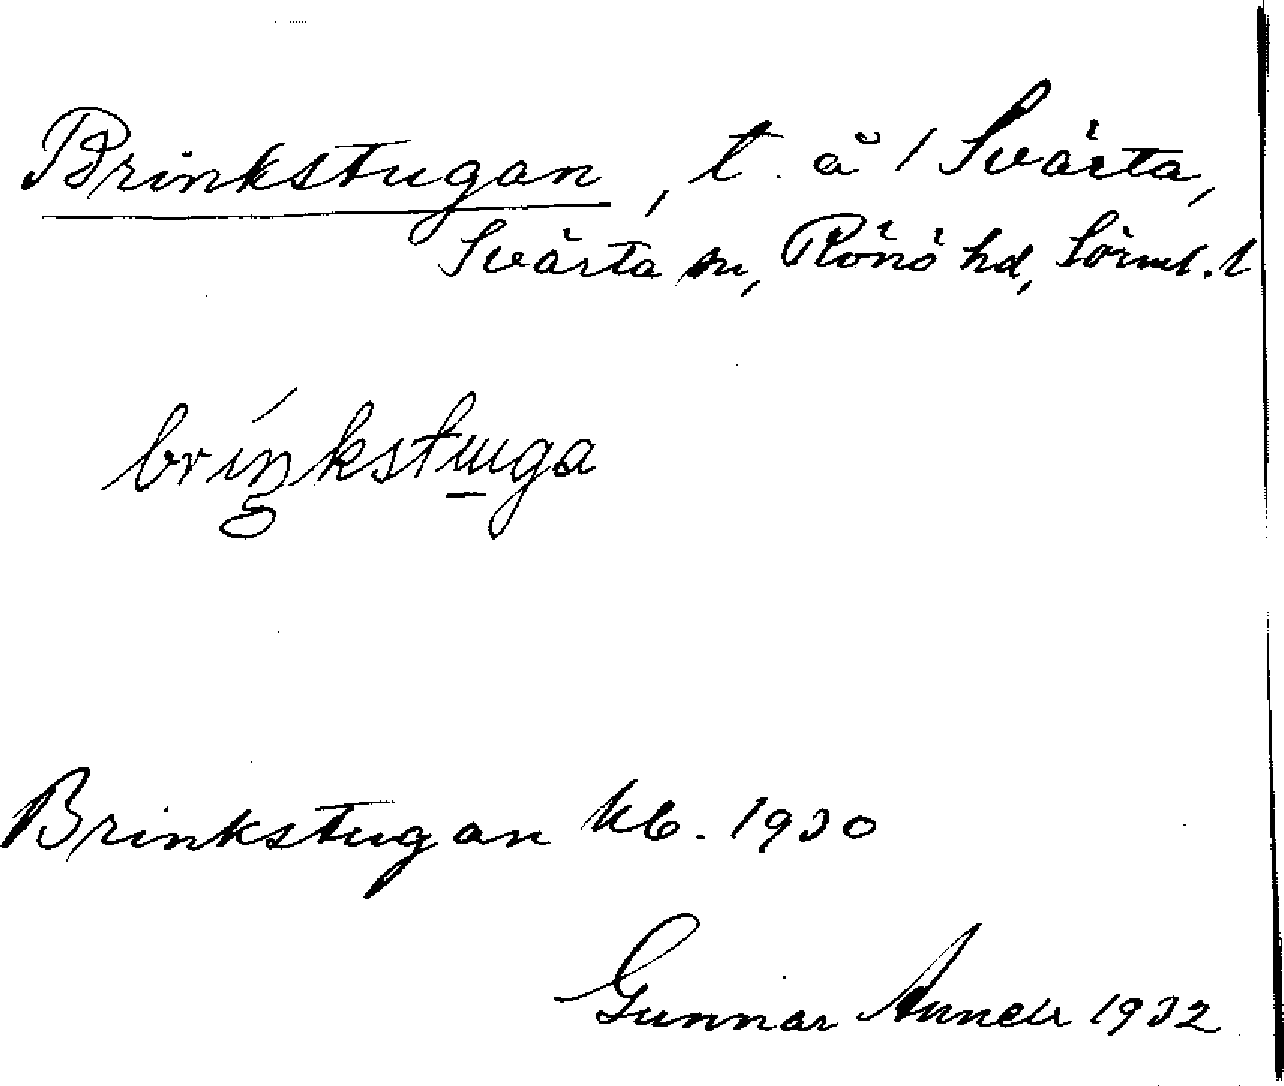 Brinkstugan, t. å / Svärta,
Svärta sn, Rönö hd, Sörml. l
brinkstuga
Brinkstugan kb. 1930
Gunnar 1932